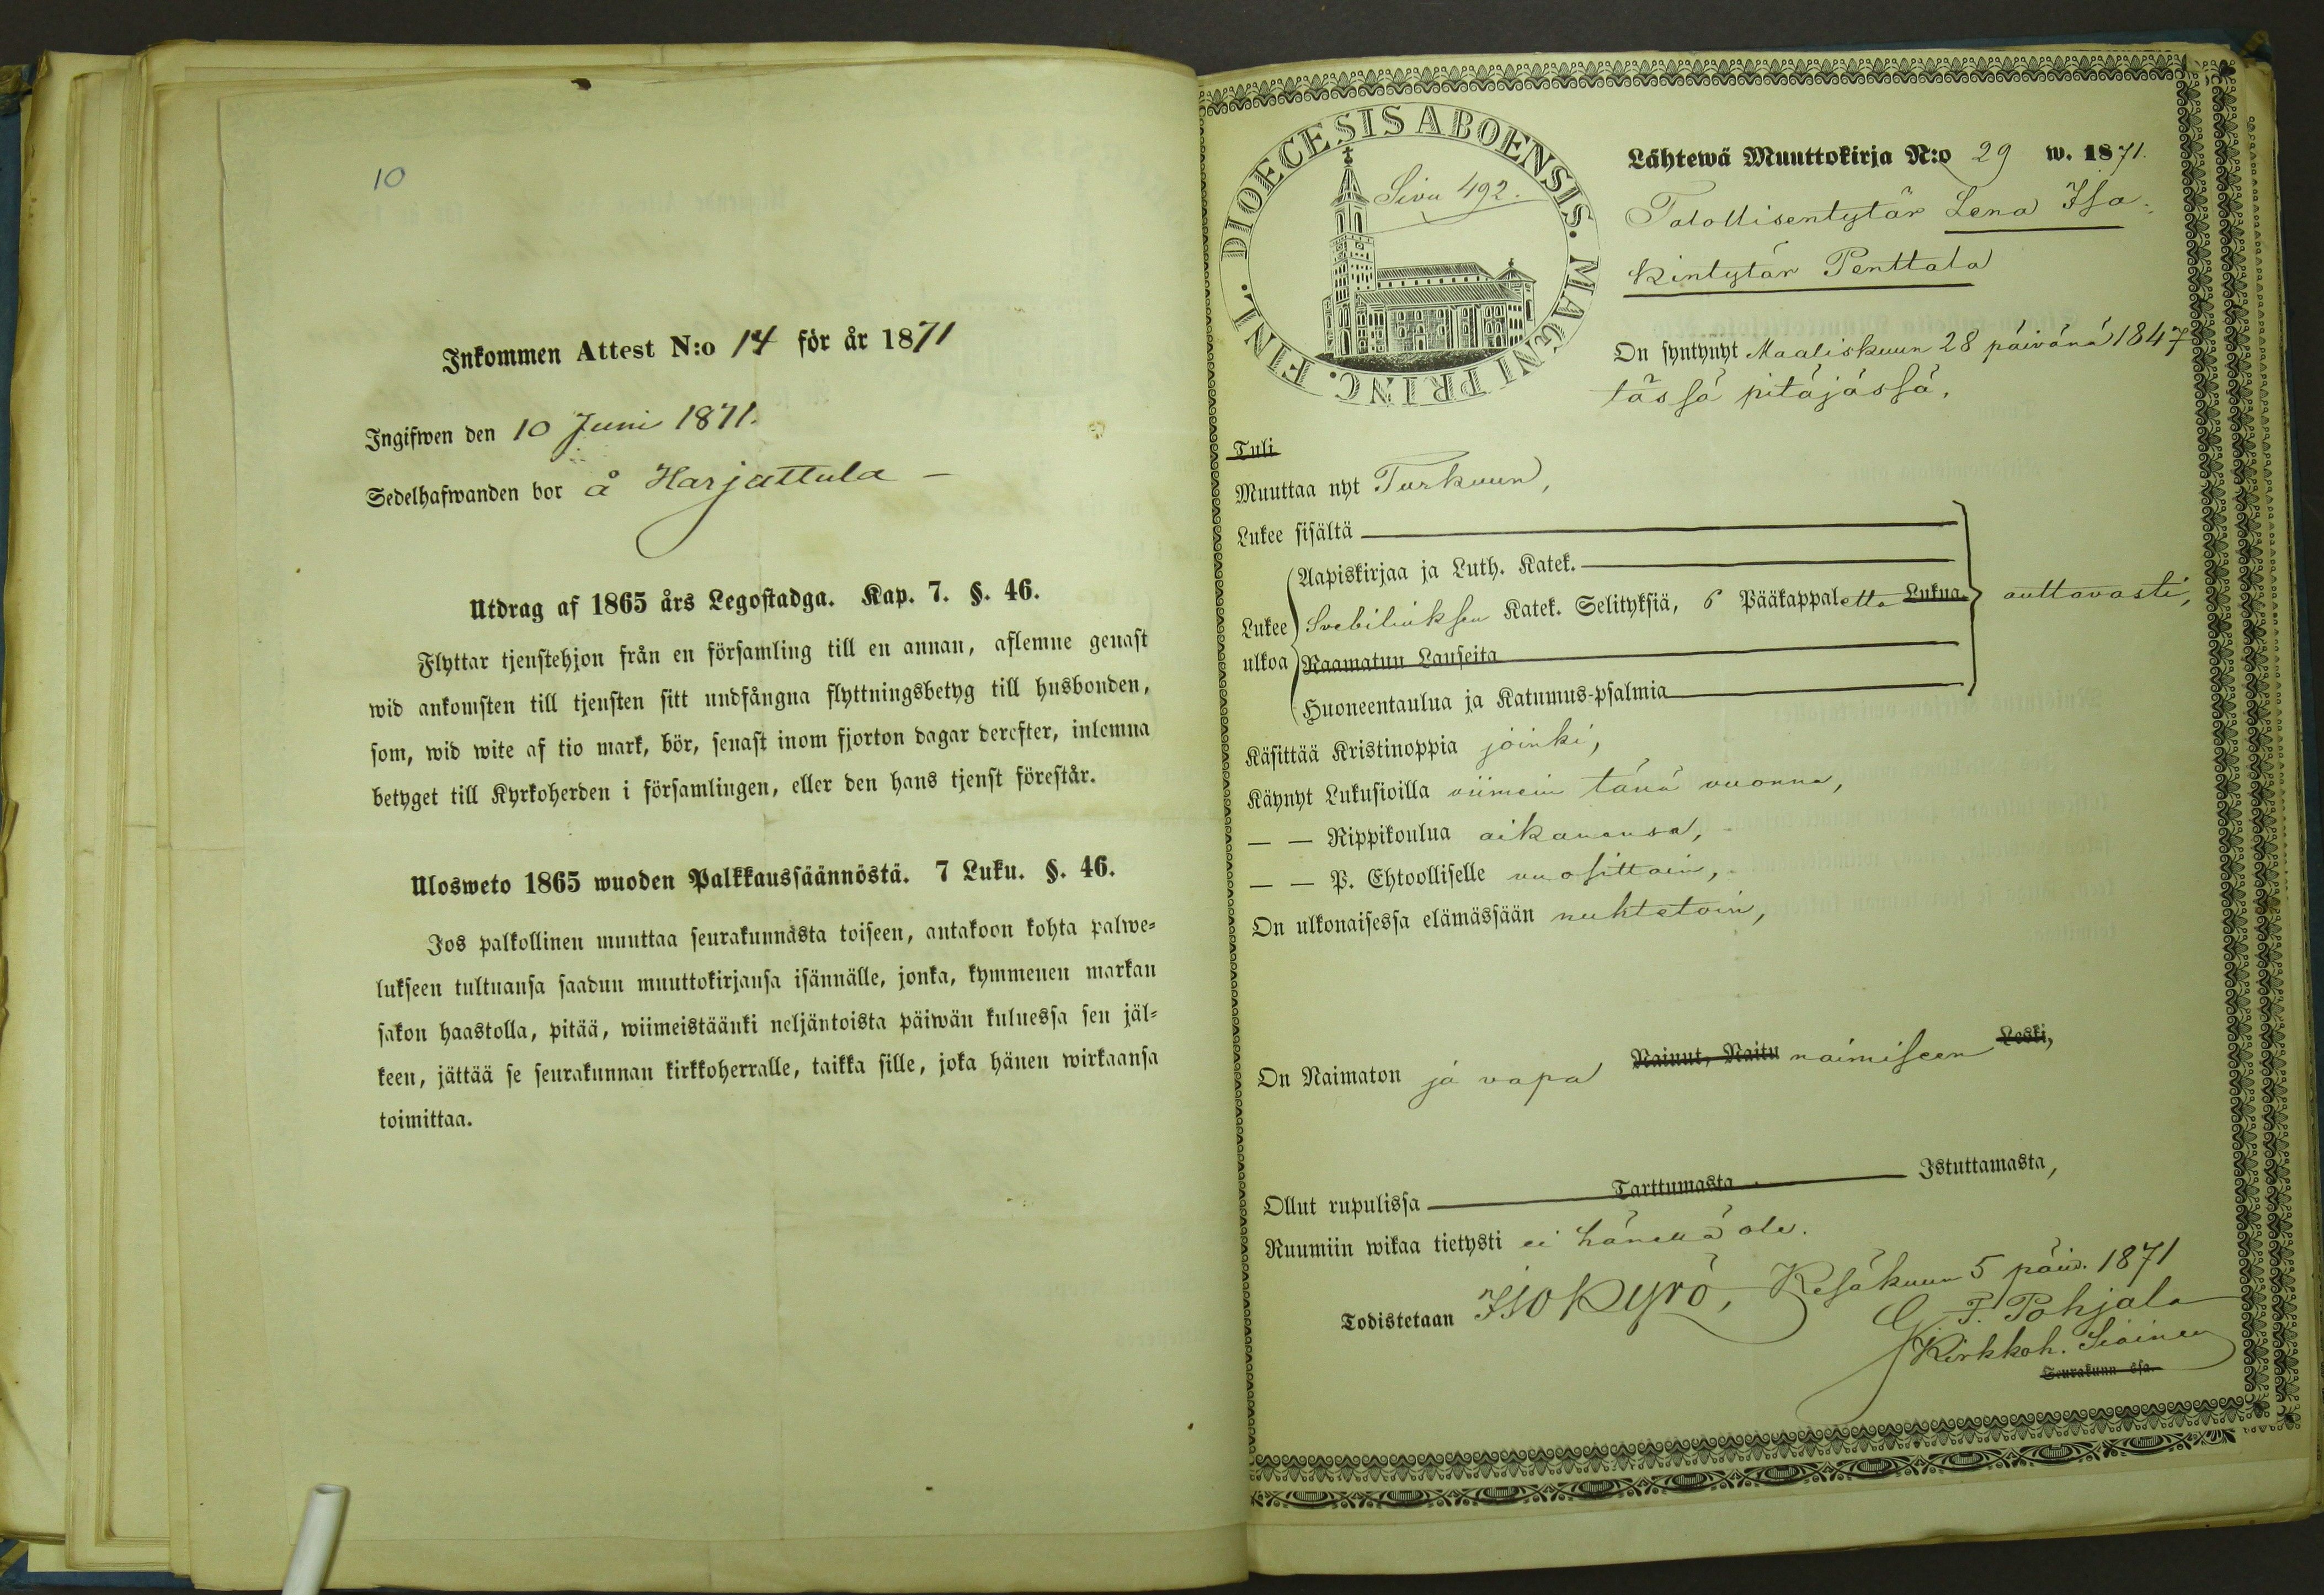 10
Inkommen Attest N:o 14 för år 1871
Ingifwen den 10 Juni 1871.
Sedelhafwanden bor å Harjattula –
Utdrag af 1865 års Legostadga. Kap. 7. §. 46.
Flyttar tjenstehjon från en församling till en annan, aflemne genast
wid ankomsten till tjensten sitt undfångna flyttningsbetyg till husbonden,
som, wid wite af tio mark, bör, senast inom fjorton dagar derefter, inlemna
betyget till Kyrkoherden i församlingen, eller den hans tjenst förestår.
Ulosweto 1865 wuoden Palkkaussäännöstä. 7 Luku. §. 46.
Jos palkollinen muuttaa seurakunnasta toiseen, antakoon kohta palwe-
lukseen tultuansa saadun muuttokirjansa isännälle, jonka, kymmenen markan
sakon haastolla, pitää, wiimeistäänki neljäntoista päiwän kuluessa sen jäl-
keen, jättää se seurakunnan kirkkoherralle, taikka sille, joka hänen wirkaansa
toimittaa.
DIOECESIS ABOENSIS. MAGNI PRINC. FINL.
Sivu 492.
Lähtewä Muuttokirja N:o 29 w. 1871.
Talollisentytär Lena Isa-
kintytär Penttala
On syntynyt Maaliskuun 28 päivänä 1847
tässä pitäjässä.
Tuli
Muuttaa nyt Turkuun,
Lukee sisältä
Aapiskirjaa ja Luth. Katek.
Lukee ulkoa
Svebiliuksen Katek. Selityksiä, 6 Pääkappaletta Lukua auttavasti,
Raamatun Lauseita
Huoneentaulua ja Katumus-psalmia
Käsittää Kristinoppia joinki,
Käynyt Lukusioilla viimein tänä vuonna,
— — Rippikoulua aikanansa,
— — P. Ehtoolliselle vuosittain,
On ulkonaisessa elämässään nuhtetoin,
On Naimaton ja vapa Nainut, Naitu naimiseen Leski,
Ollut rupulissa Tarttumasta Istuttamasta,
Ruumiin wikaa tietysti ei hänellä ole.
Todistetaan Isokyrö, Kesäkuun 5 päiv. 1871
G. F. Pohjala
Kirkkoh. Siainen
Seurakunn ssa.